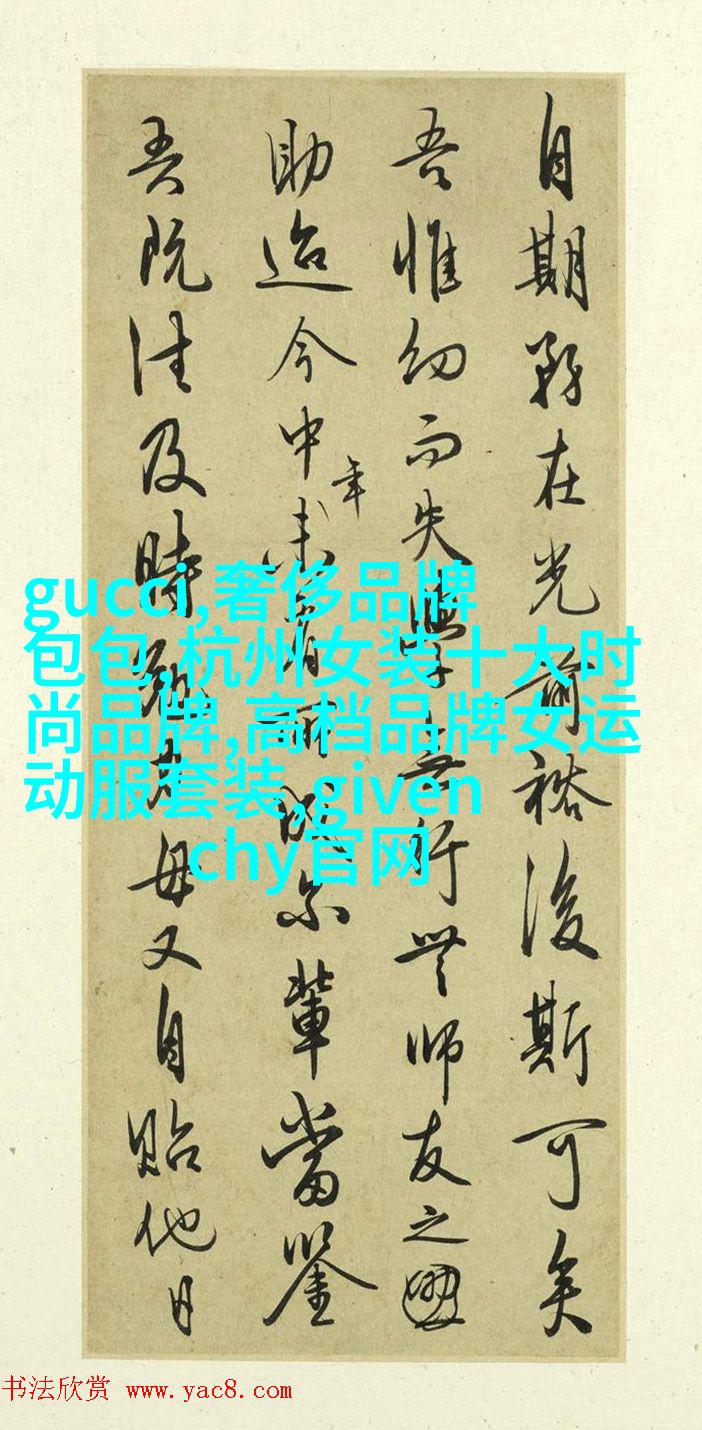 自期務在光前裕後斯可矣
吾惟幼而失學無行無師友之
助迨今中年未有所成尔輩當鑒
吾既往及時勉力毋又自貽他日
gucci,奢侈品牌
包包,杭州女装十大时
尚品牌,高档品牌女运
动服套装,given
chy官网
书法欣赏 www.yac8.com